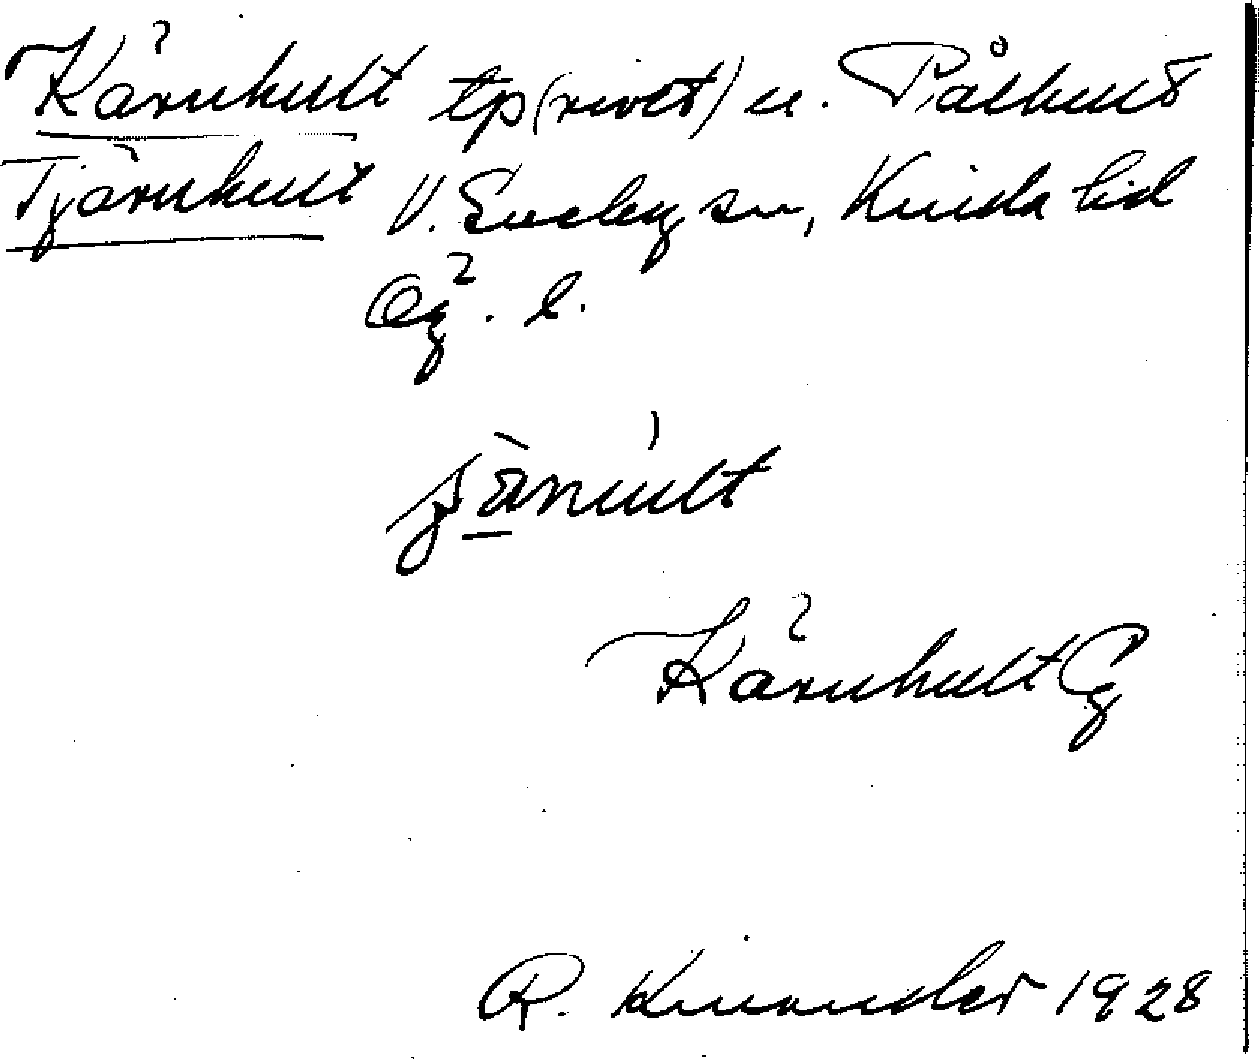 Kärnhult tp (rivet) u. Pålhult
Tjärnhult V. Eneby sn, Kinda hd
Ög. l.
Kärnhult Eg
R. Kinander 1928